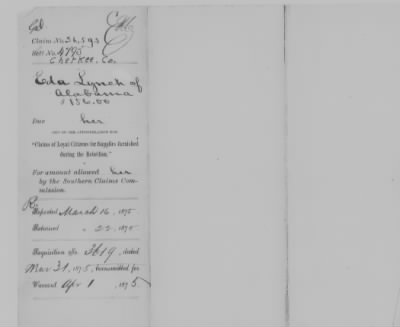 Claim No. 36,593
Sett. No. 4795
Cherkee, Co.
Eda Lynch of
Alabama
$156.00
Due her
OUT OF THE APPROPRIATION FOR
"Claims of Loyal Citizens for Supplies furnished
during the Rebellion."
For amount allowed her
by the Southern Claims Com-
mission.
Reported March 16, 1875
Returned " 22, 1875
Requisition No. 3619, dated
Mar 31, 1875, transmitted for
Warrant Apr 1 1875